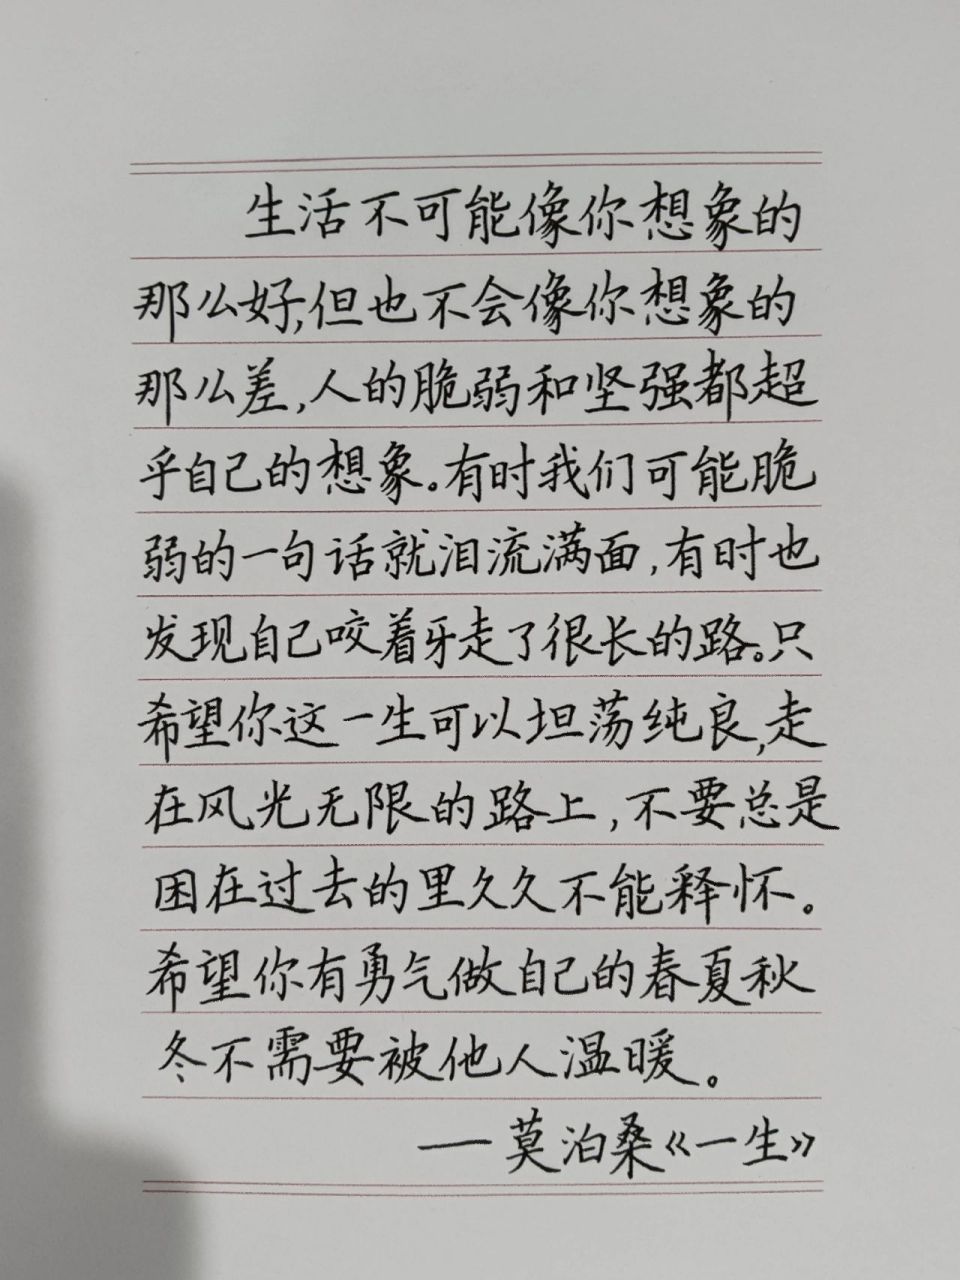 生活不可能像你想象的
那么好,但也不会像你想象的
那么差,人的脆弱和坚强都超
乎自己的想象。有时我们可能脆
弱的一句话就泪流满面,有时也
发现自己咬着牙走了很长的路。只
希望你这一生可以坦荡纯良,走
在风光无限的路上,不要总是
困在过去的里久久不能释怀。
希望你有勇气做自己的春夏秋
冬不需要被他人温暖。
——莫泊桑《一生》